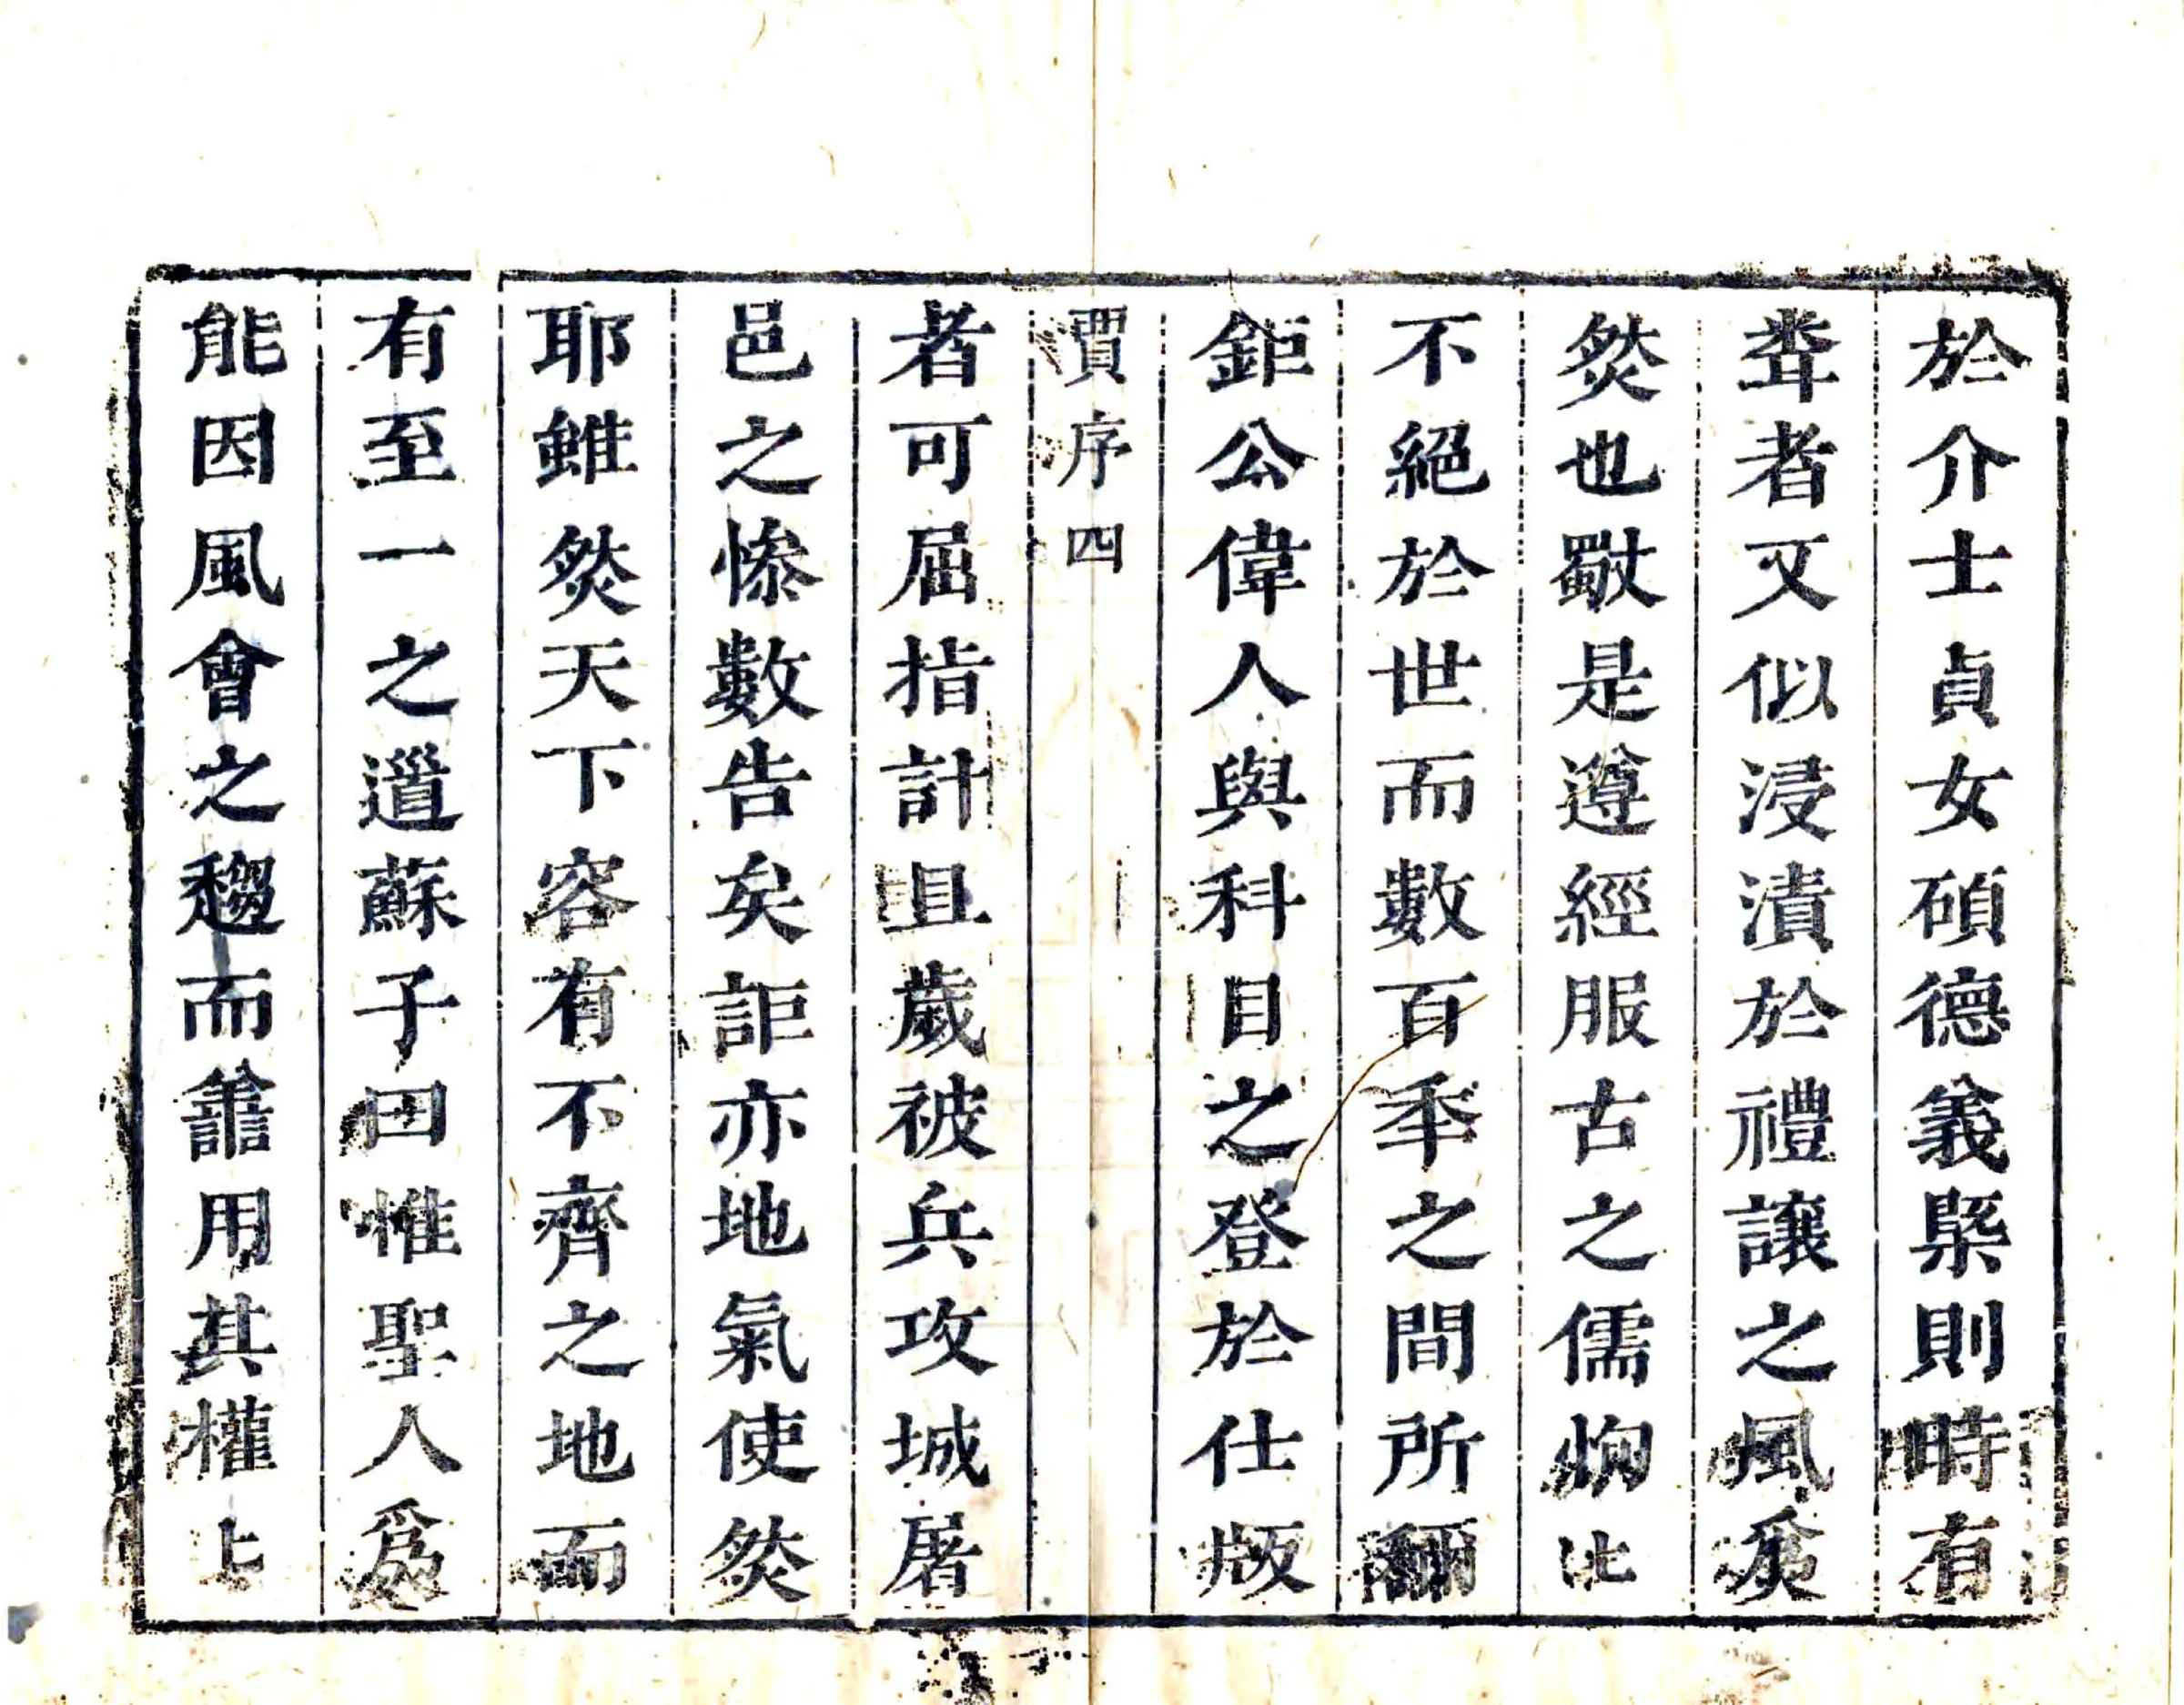 於介士貞女碩德義槩則時有
者又似浸漬於禮讓之風
然也是遵經服古之儒炳比
不絕於世而數百秊之間所稱
鉅公偉人與科目之登於仕版
賈序 四
者可屈指計且歲被兵攻城屠
邑之慘數告矣詎亦地氣使然
耶雖然天下容有不齊之地而
有至一之道蘇子曰惟聖人爲
能因風會之趨而譱用其權上